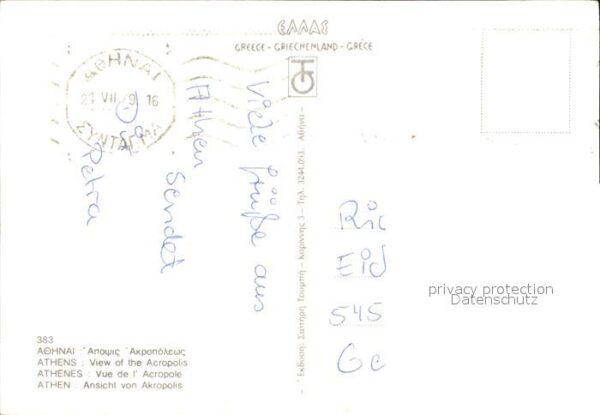 ΕΛΛΑΣ
GREECE - GRIECHENLAND - GRÈCE
ΑΘΗΝΑΙ
VII 9 16
ΣΥΝΤΑΓΜΑ
Viele Grüße aus
Athen
sendet
Petra
Ἔκδοσις: Σωτήρη Τουμπή - Καρύννης 3 - Τηλ. 3244.093. Ἀθῆναι -
Ric
Eid
545
Ge
privacy protection
Datenschutz
383
ΑΘΗΝΑΙ : Ἄποψις Ἀκροπόλεως
ATHENS : View of the Acropolis
ATHENES : Vue de l' Acropole
ATHEN : Ansicht von Akropolis